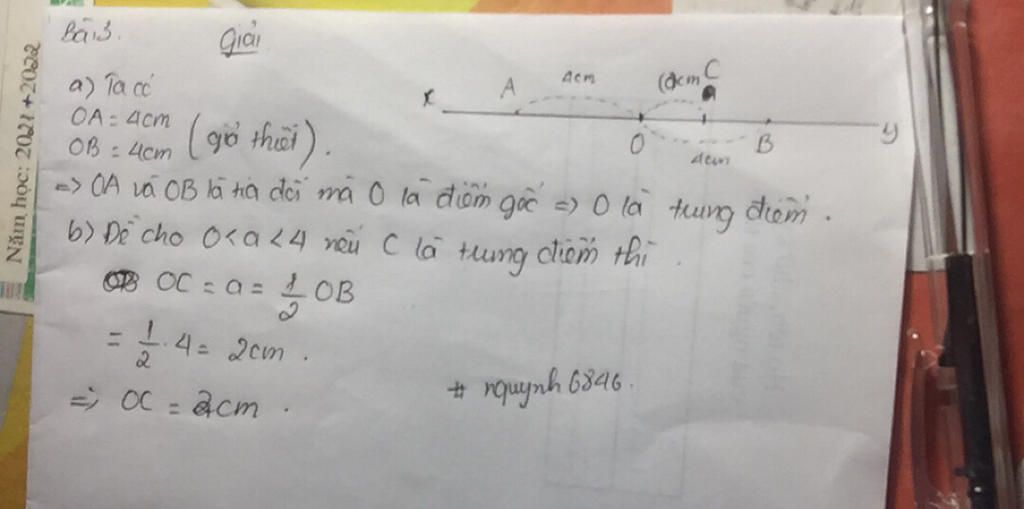 Năm học: 2021+2022
Bài 3.
Giải
a) Ta có
OA = 4cm
OB = 4cm (giả thiết).
x A 4cm O (acm C a 4cm B y
=> OA và OB là tia đối mà O là điểm gốc => O là trung điểm.
b) Đề cho 0 < a < 4 nếu C là trung điểm thì.
OC = a = 1/2 OB
= 1/2 . 4 = 2cm.
=> OC = 2cm.
# nquynh6846.